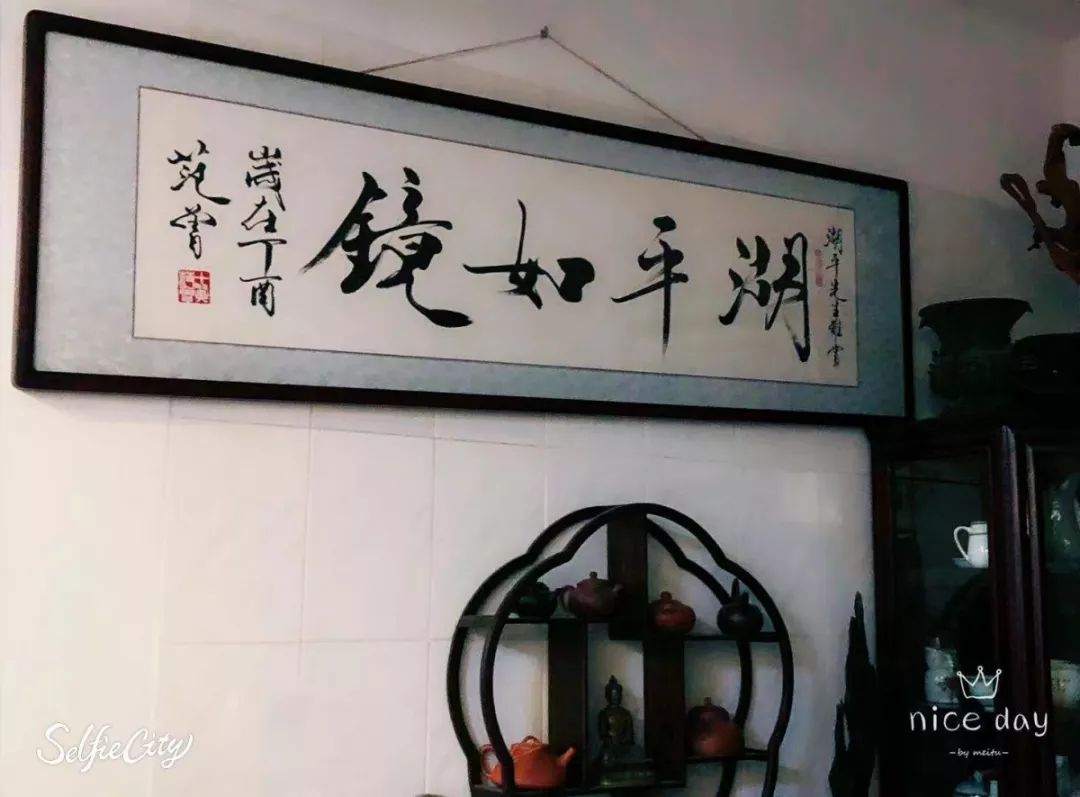 湖平先生雅賞
湖平如鏡
歲在丁酉
范曾
SelfieCity
nice day
-by meitu-